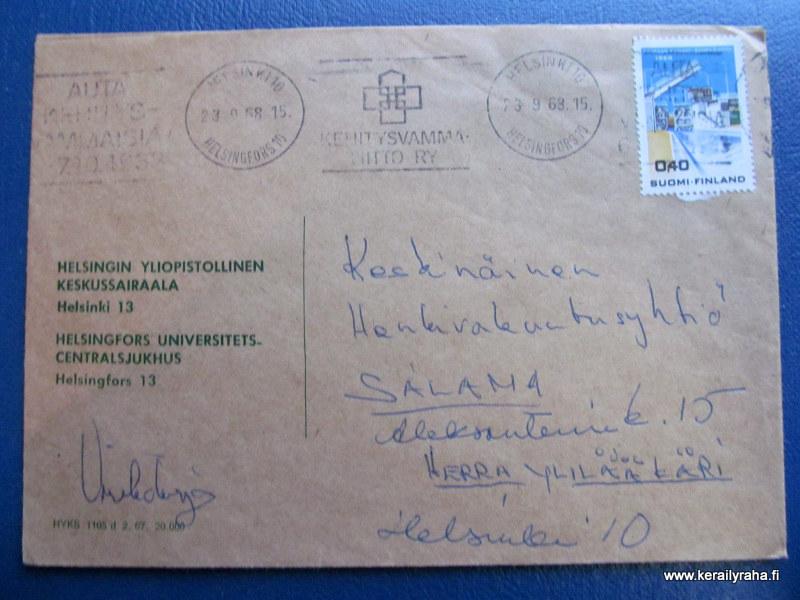 AUTA
KEHITYS-
HELSINKI 10
23.-9.68.15.
HELSINGFORS 10
KEHITYSVAMMA-
LIITTO RY
HELSINKI 10
23.-9.68.15.
HELSINGFORS 10
0,40
SUOMI-FINLAND
HELSINGIN YLIOPISTOLLINEN
KESKUSSAIRAALA
Helsinki 13
HELSINGFORS UNIVERSITETS-
CENTRALSJUKHUS
Helsingfors 13
Keskinäinen
Henkivakuutusyhtiö
SALAMA
Aleksanterink. 15
HERRA YLILÄÄKÄRI
Helsinki 10
HYKS 1105 d 2. 67. 20.000
www.kerailyraha.fi